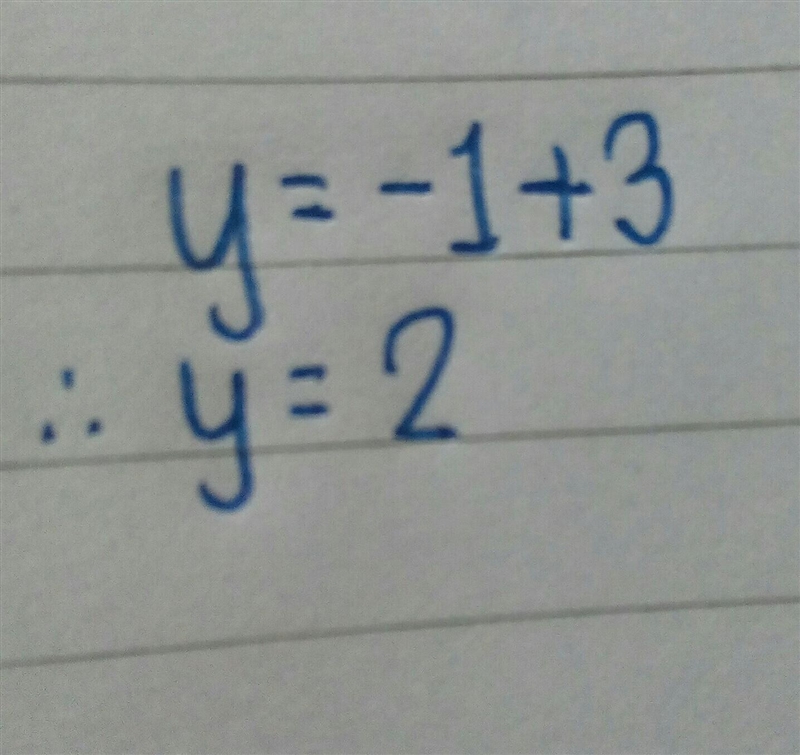 y = -1 + 3
∴ y = 2